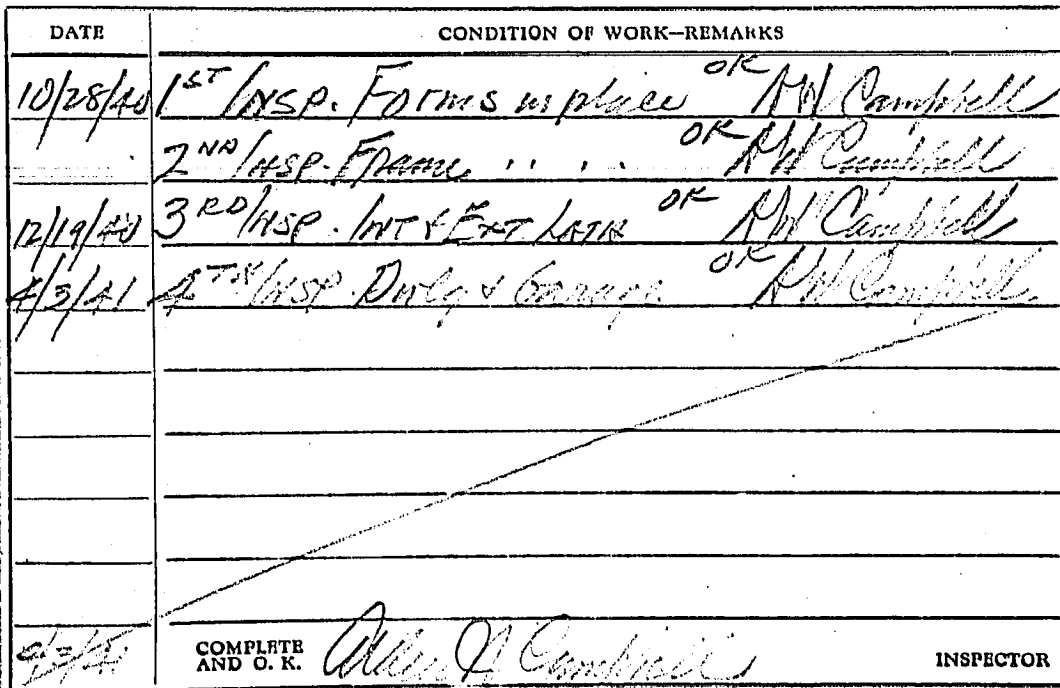 DATE CONDITION OF WORK—REMARKS
10/28/40 1ST INSP. Forms in place OK Campbell
2ND INSP. Frame " " OK Campbell
12/19/40 3RD INSP. INT & EXT LATH OK Campbell
4/3/41 4TH INSP. Dwlg & Garage OK Campbell
COMPLETE AND O. K. Campbell INSPECTOR